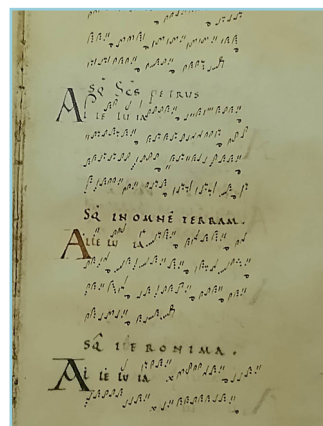 SQ̄ SC̄S PETRUS
Al le lu ia
SQ̄ IN OMNĒ TERRAM.
Al le lu ia
SQ̄ IERONIMA.
Al le lu ia